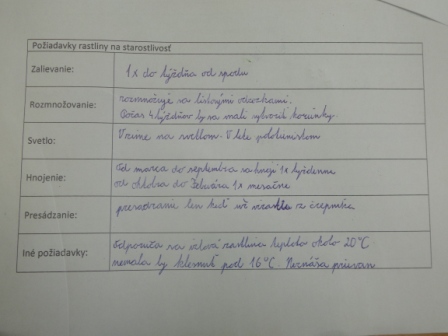 Požiadavky rastliny na starostlivosť
Zalievanie:
1x do týždňa od spodu
Rozmnožovanie:
rozmnožuje sa listovými odrezkami.
Počas 4 týždňov by sa mali vytvoriť korienky.
Svetlo:
V zime na svetlom. V lete polotienistom
Hnojenie:
Od marca do septembra sa hnojí 1x týždenne
od októbra do februára 1x mesačne
Presádzanie:
presádzanie len keď už vrastla z črepníka
Iné požiadavky:
odporúča sa teplota okolo 20°C
nemala by klesnúť pod 16°C. Neznáša prievan